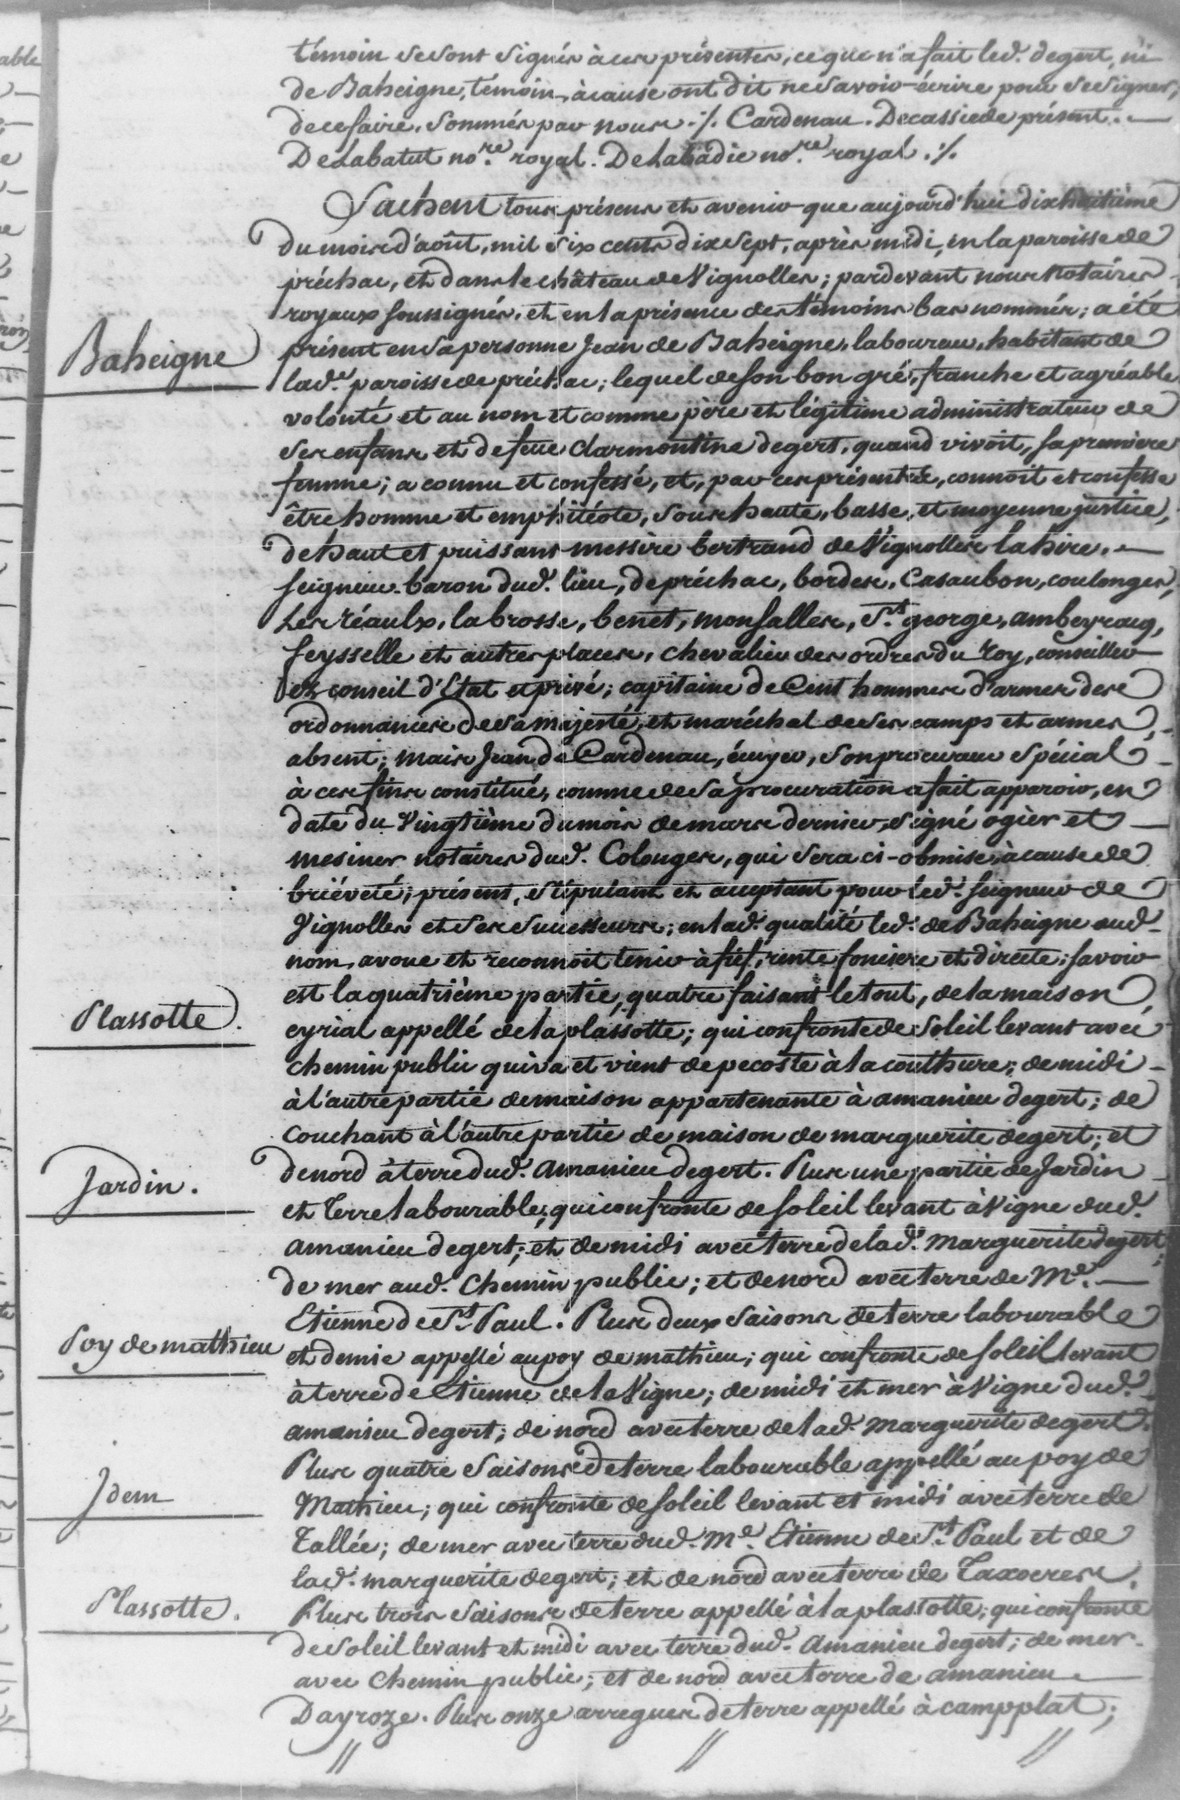 témoin se sont signés à ces présentes, ce que n'a fait led. degert, ni
de Baheigne, témoin, à cause ont dit ne savoir écrire pour se signer,
de ce faire, sommés par nous ./. Cardenau. Decassiede présent. —
De Labatut no.re royal. De Labadie no.re royal ./.
Sachent tous présens et avenir que aujourd'hui dix huitième
du mois d'août, mil six cents dix sept, après midi, en la paroisse de
préchac, et dans le château de Vignolles; pardevant nous notaires
royaux soussignés, et en la présence des témoins bas nommés; a été
Baheigne
présent en sa personne Jean de Baheigne, laboureur, habitant de
lad.e paroisse de préchac; lequel de son bon gré, franche et agréable
volonté et au nom et comme père et légitime administrateur de
ses enfans et de feue Clarmontine degert, quand vivoit, sa premiere
femme; a connu et confessé, et, par ces présentes, connoit et confesse
être homme et emphitéote, sous haute, basse, et moyenne justice,
de haut et puissant messire bertrand de Vignolles lahire. —
seigneur baron dud. lieu, de préchac, bordes, Casaubon, coulonges,
Les réaulx, labrosse, benet, monsalles, S.t george, ambeyracq,
feysselle et autres places, chevalier des ordres du roy, conseiller
ez conseil d'Etat et privé; capitaine de Cent hommes d'armes des
ordonnances de sa majesté, et maréchal de ses camps et armes,
absent; mais Jean de Cardenau, écuyer, son procureur spécial
à ces fins constitué, comme de sa procuration a fait apparoir, en
date du vingtième du mois de mars dernier, signé ogier et —
mesiner notaires dud. Colonges, qui sera ci-obmise à cause de
briéveté; présent, stipulant et acceptant pour led. seigneur de
Vignolles et ses successeurs; en lad. qualité led. de Baheigne aud.
nom, avoue et reconnoit tenir à fief, rente fonciere et directe, savoir
est la quatrième partie, quatre faisant le tout, de la maison
Plassotte.
eyrial appellé de la plassotte; qui confronte de soleil levant avec
chemin public qui va et vient de pecoste à la couthure; de midi
à l'autre partie de maison appartenante à amanieu degert; de
couchant à l'autre partie de maison de marguerite degert; et
Jardin.
de nord à terre dud. amanieu degert. Plus une partie de Jardin
et terre labourable; qui confronte de soleil levant à vigne dud.
amanieu degert; et de midi avec terre de lad. marguerite degert;
de mer aud. chemin public; et de nord avec terre de M.e —
Etienne de S.t Paul. Plus deux saisons de terre labourable
Poy de mathieu
et demie appellé au poy de mathieu; qui confronte de soleil levant
à terre de Etienne de la Vigne; de midi et mer à vigne dud.
amanieu degert; de nord avec terre de lad. marguerite degert.
Plus quatre saisons de terre labourable appellé au poy de
Idem
Mathieu; qui confronte de soleil levant et midi avec terre de
Tallée; de mer avec terre dud. M.e Etienne de S.t Paul et de
lad. marguerite degert; et de nord avec terre de
Plassotte.
Plus trois saisons de terre appellé à la plassotte; qui confronte
de soleil levant et midi avec terre dud. amanieu degert; de mer
avec chemin public; et de nord avec terre de amanieu —
Dayroze. Plus onze arregues de terre appellé à campplat;